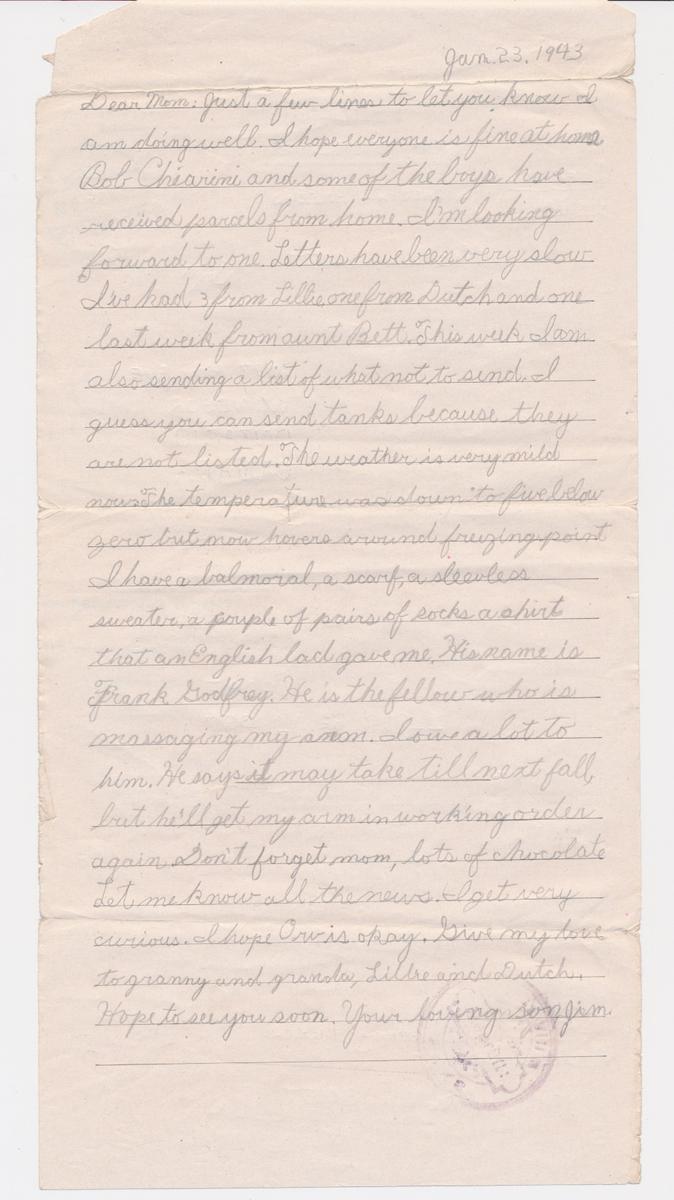 Jan. 23. 1943
Dear Mom: Just a few lines to let you know I
am doing well. I hope everyone is fine at home
Bob Chiarini and some of the boys have
received parcels from home. I'm looking
forward to one. Letters have been very slow
I've had 3 from Lillie, one from Dutch and one
last week from aunt Bett. This week I am
also sending a list of what not to send. I
guess you can send tanks because they
are not listed. The weather is very mild
now. The temperature was down to five below
zero but now hovers around freizing point
I have a balmoral, a scarf, a sleeveless
sweater, a couple of pairs of socks a shirt
that an English lad gave me. His name is
Frank Godfrey. He is the fellow who is
massaging my arm. I owe a lot to
him. He says it may take till next fall,
but he'll get my arm in working order
again. Don't forget mom, lots of chocolate
Let me know all the news. I get very
curious. I hope Orv is okay. Give my love
to granny and granda, Lillie and Dutch.
Hope to see you soon. Your loving son Jim.